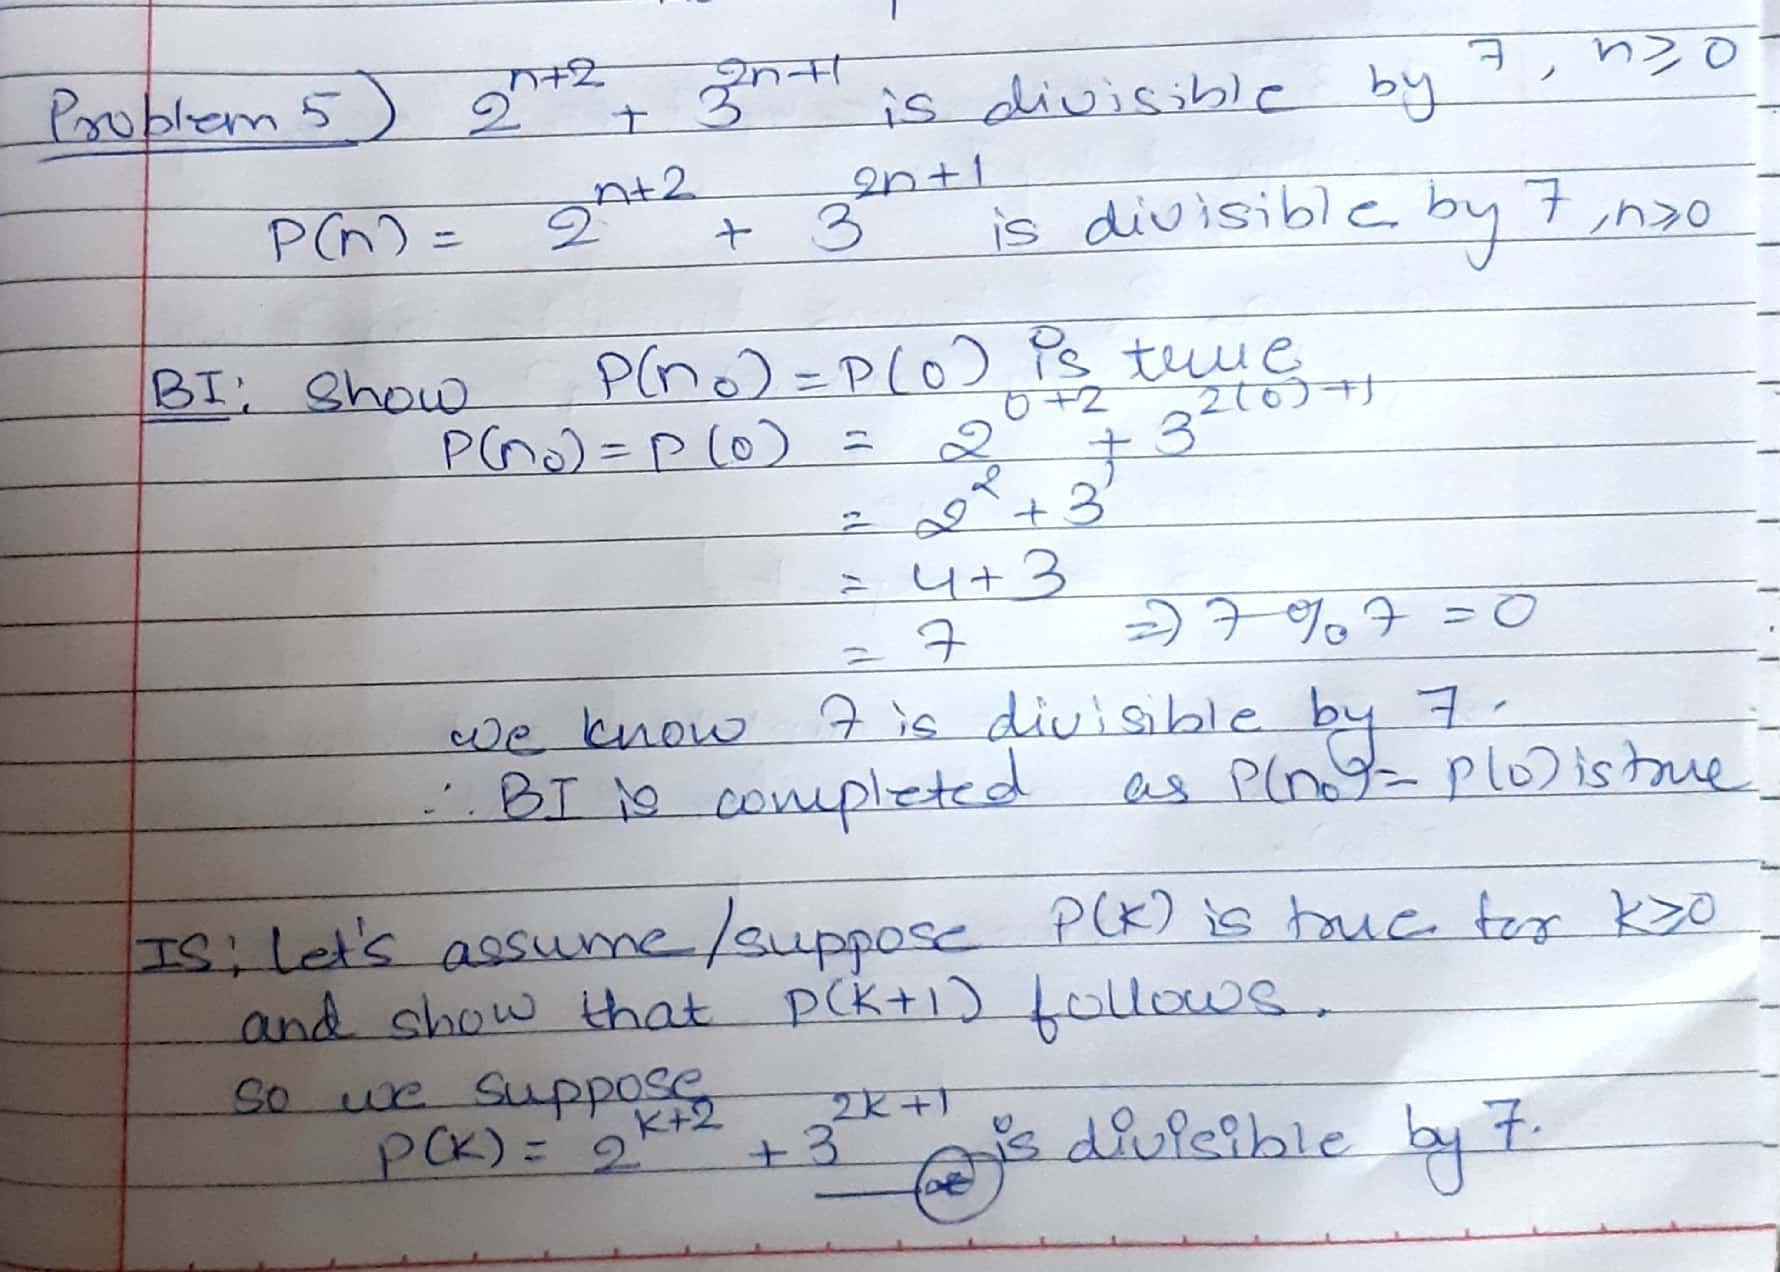 Problem 5) 2^(n+2) + 3^(2n+1) is divisible by 7, n≥0
P(n) = 2^(n+2) + 3^(2n+1) is divisible by 7, n≥0
BI: Show P(n₀) = P(0) is true
P(n₀) = P(0) = 2^(0+2) + 3^(2(0)+1)
= 2² + 3¹
= 4+3
= 7 ⇒ 7 % 7 = 0
we know 7 is divisible by 7.
∴ BI is completed as P(n₀) = P(0) is true
IS: Let's assume/suppose P(K) is true for K≥0
and show that P(K+1) follows.
So we suppose
P(K) = 2^(K+2) + 3^(2K+1) is divisible by 7.